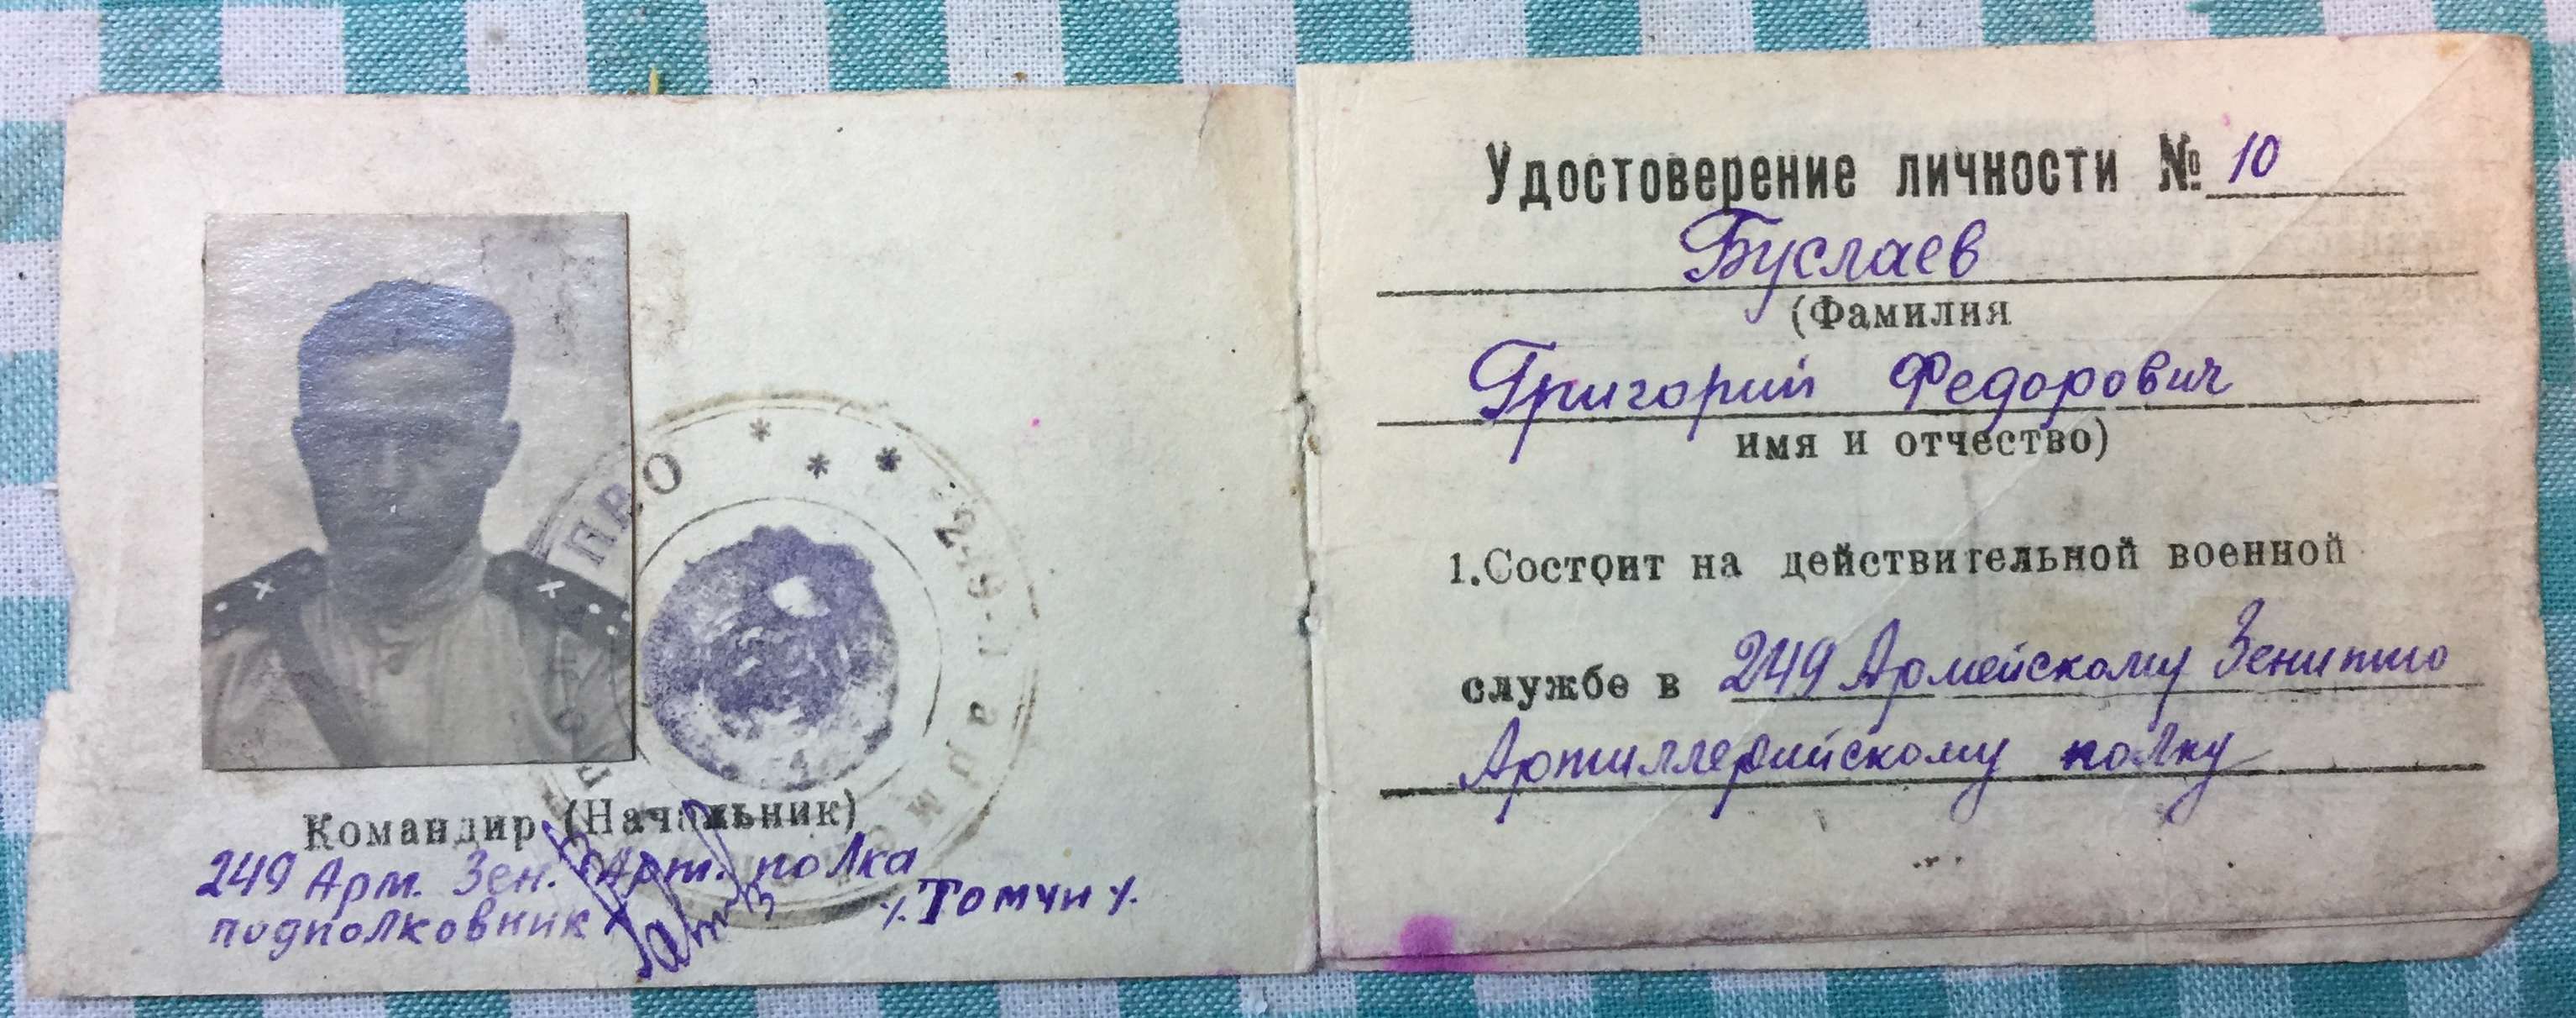 ПВО * * * 249-й арм
Командир (Начальник)
249 Арм. Зен. Арт. полка
подполковник
Томчи
Удостоверение личности № 10
Буслаев
(Фамилия
Григорий Федорович
имя и отчество)
1.Состоит на действительной военной
службе в 249 Армейскому Зенитно
Артиллерийскому полку